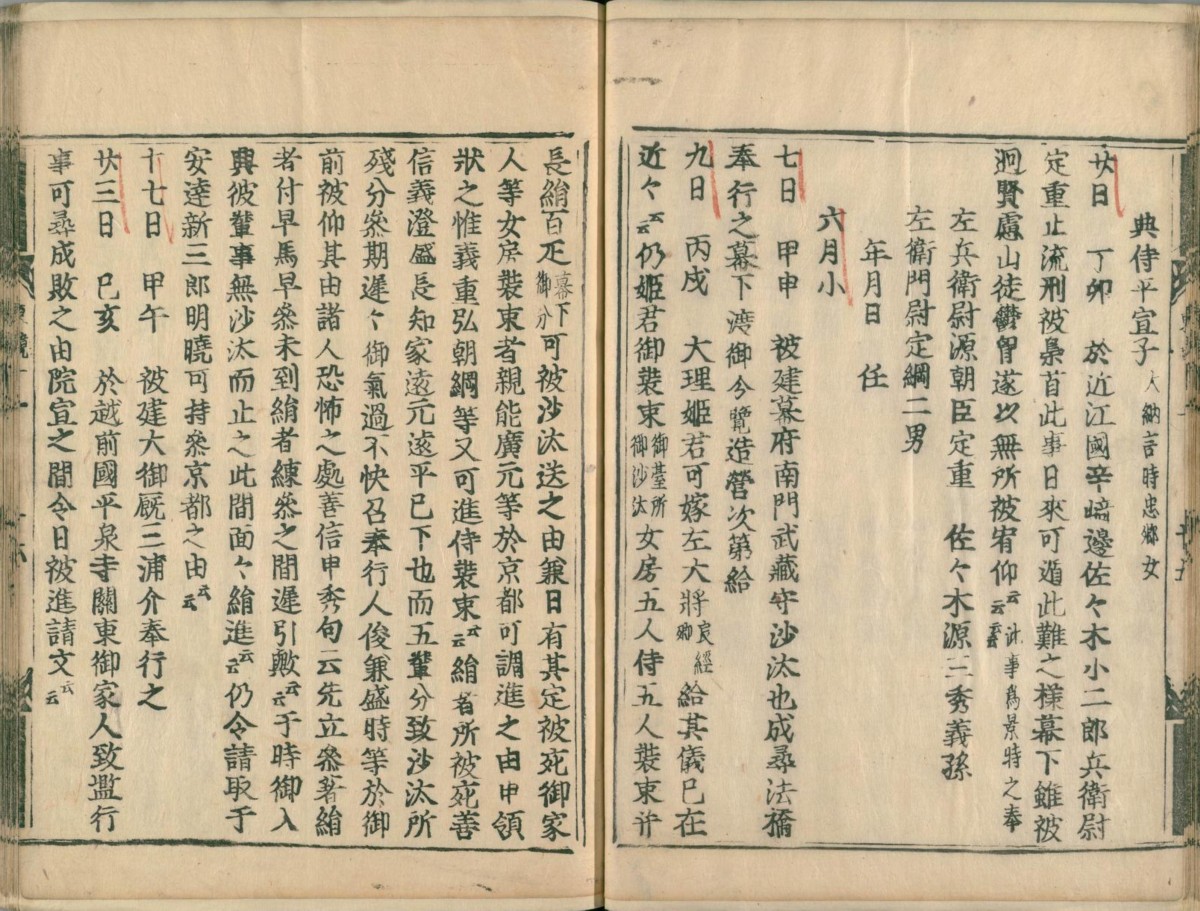 典侍平宣子大納言時忠卿女
廿日　丁卯　於近江國辛﨑邊佐々木小二郎兵衛尉
定重止流刑被梟首此事日來可遁此難之樣幕下雖被
迥賢慮山徒欝胷遂以無所被宥仰云云此事爲景時之奉
左兵衛尉源朝臣定重　佐々木源三秀義孫
左衛門尉定綱二男
年月日　任
六月小
七日　甲申　被建幕府南門武藏守沙汰也成尋法橋
奉行之幕下渡御令覽造營次第給
九日　丙戌　大理姬君可嫁左大將良經卿給其儀已在
近々云云仍姬君御裝束御臺所御沙汰女房五人侍五人裝束并
長絹百疋幕下御分可被沙汰送之由兼日有其定被宛御家
人等女房裝束者親能廣元等於京都可調進之由申領
狀之惟義重弘朝綱等又可進侍裝束云云絹者所被宛善
信義澄盛長知家遠元遠平已下也而五輩分致沙汰所
殘分參期遲々御氣過不快召奉行人俊兼盛時等於御
前被仰其由諸人恐怖之處善信申秀句云先立參著絹
者付早馬早參未到絹者練參之間遲引歟云云于時御入
興彼輩事無沙汰而止之此間面々絹進云云仍令請取于
安達新三郎明曉可持參京都之由云云
十七日　甲午　被建大御厩三浦介奉行之
廿三日　己亥　於越前國平泉寺關東御家人致濫行
事可尋成敗之由院宣之間今日被進請文云云